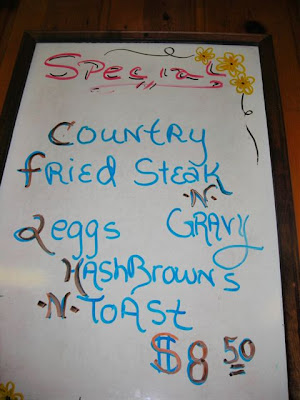 Special
Country
Fried Steak
-N-
2 eggs Gravy
HashBrowns
-N- Toast
$8 50